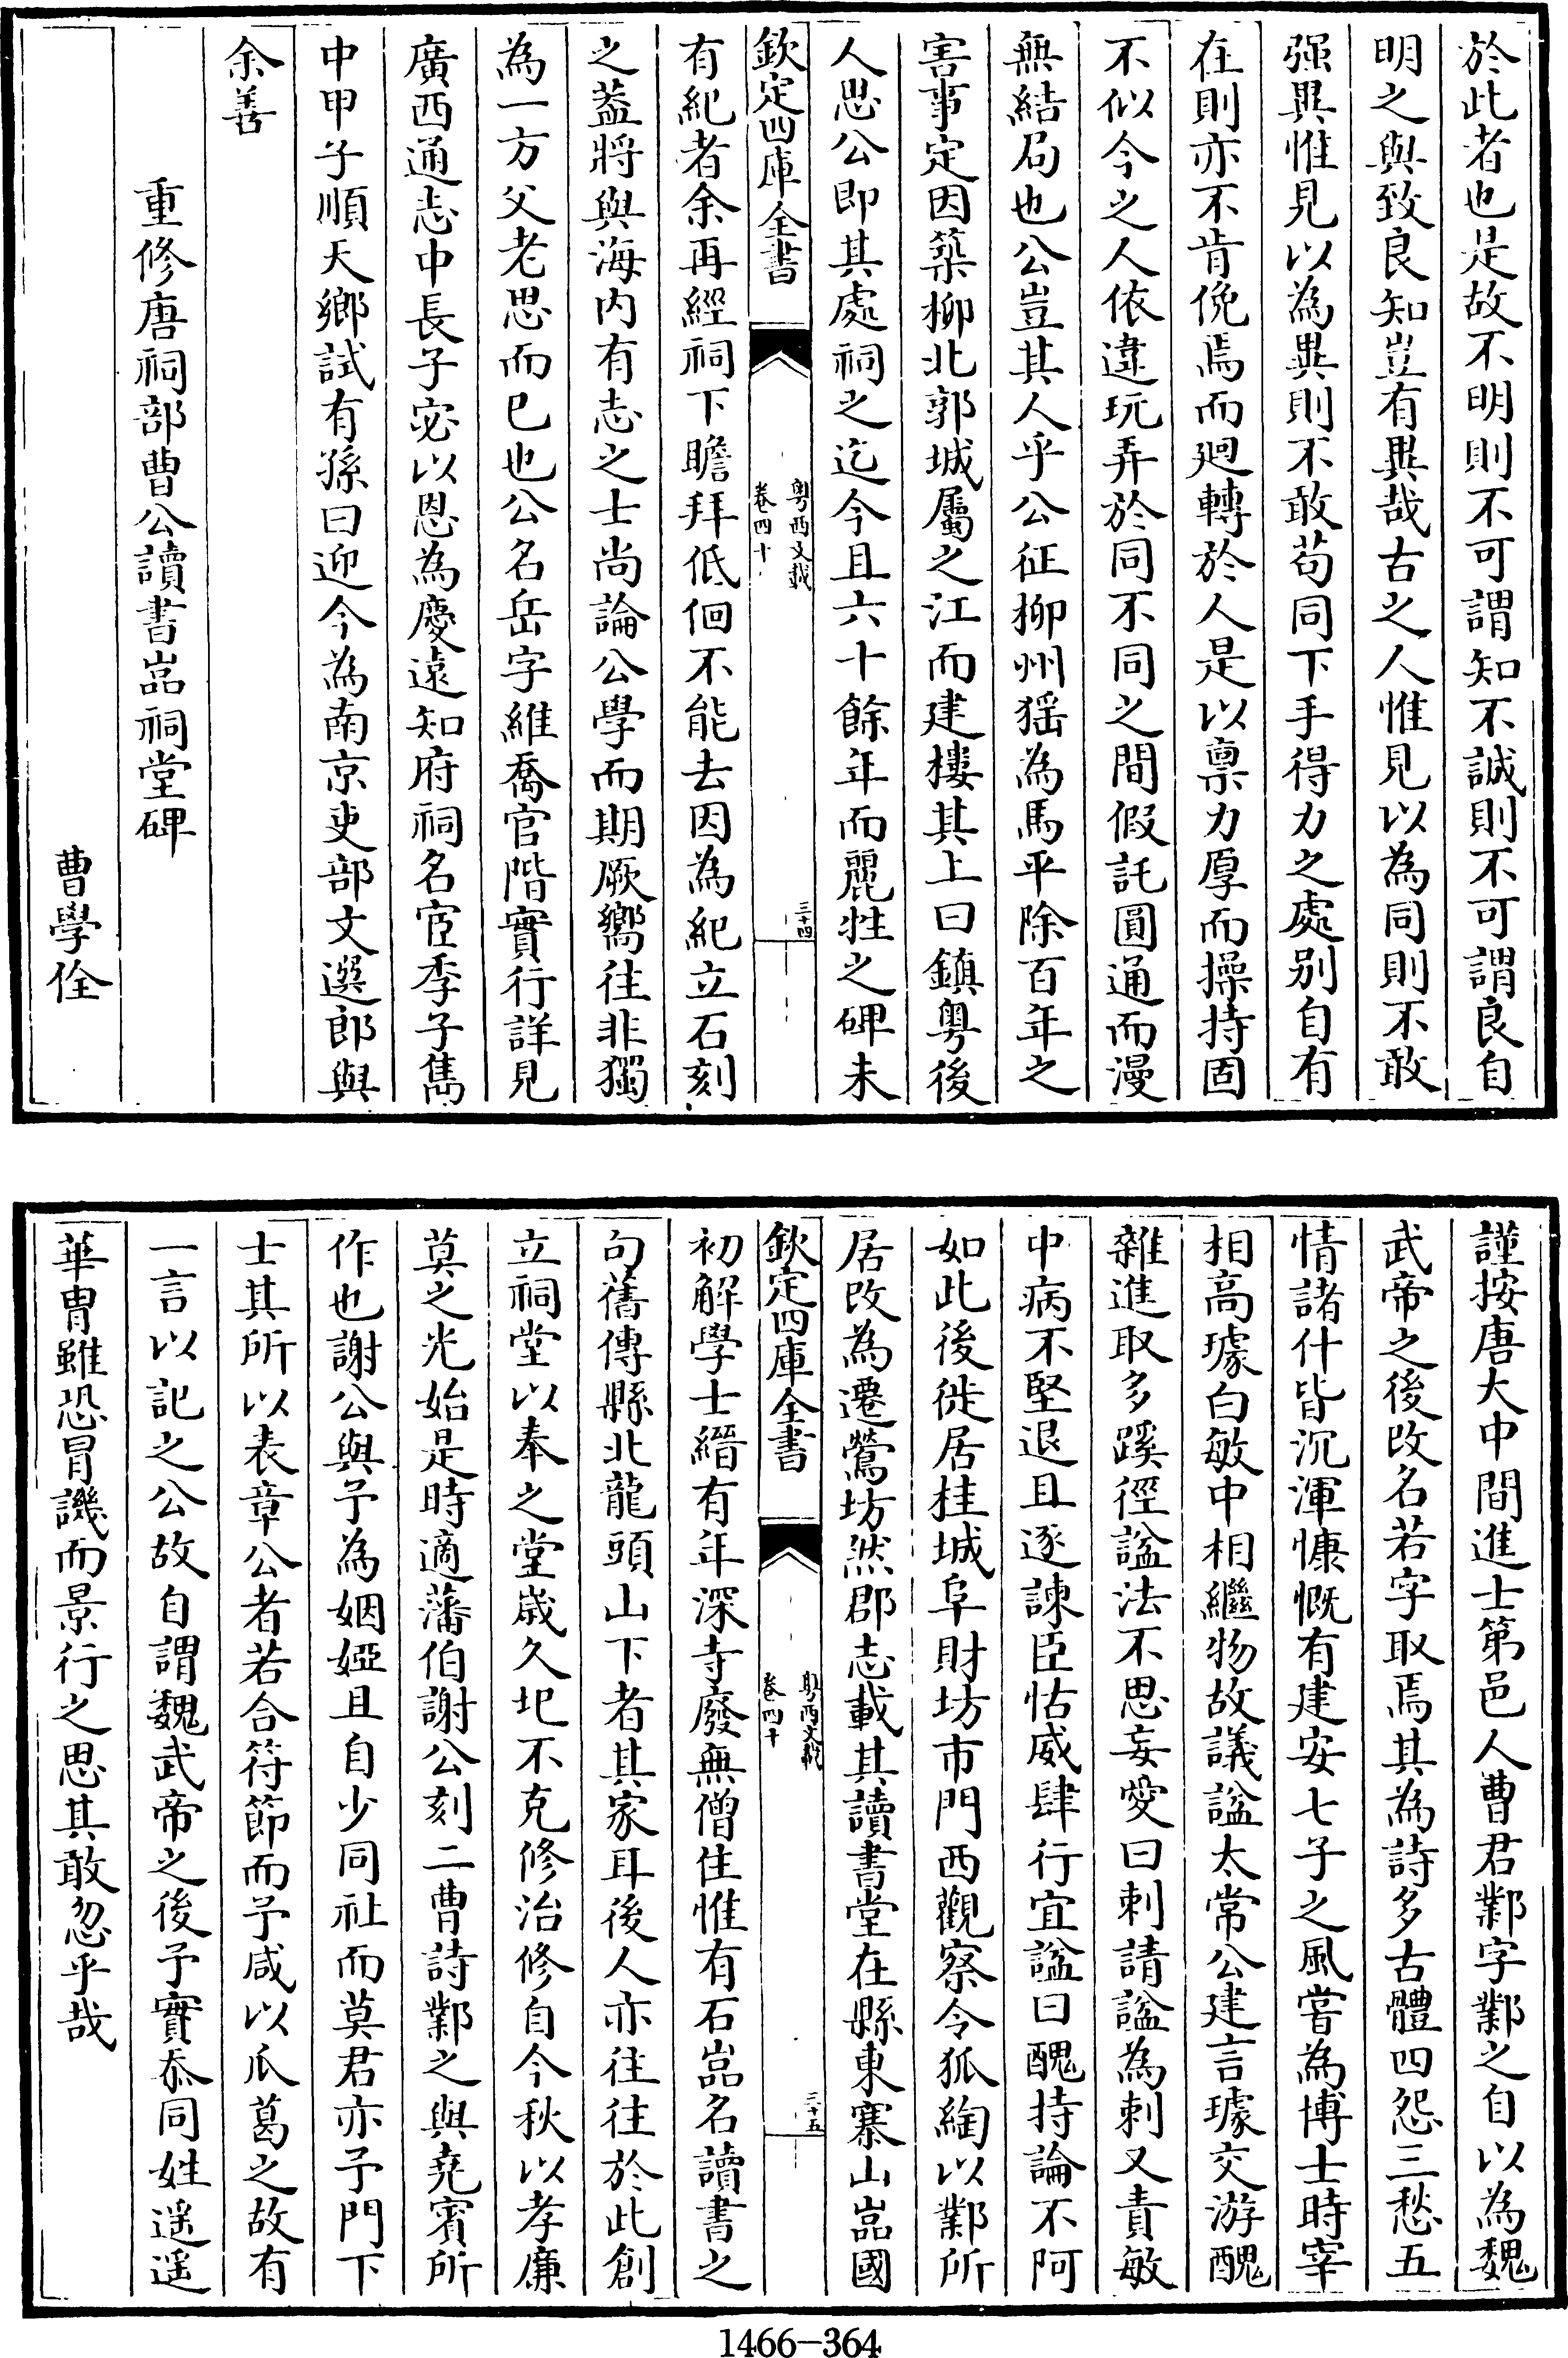 於此者也是故不明則不可謂知不誠則不可謂良自
明之與致良知豈有異哉古之人惟見以為同則不敢
强異惟見以為異則不敢苟同下手得力之處别自有
在則亦不肯俛焉而廻轉於人是以禀力厚而操持固
不似今之人依違玩弄於同不同之間假託圓通而漫
無結局也公豈其人乎公征柳州猺為馬平除百年之
害事定因築柳北郭城屬之江而建樓其上曰鎮粤後
人思公即其處祠之迄今且六十餘年而麗牲之碑未
欽定四庫全書
粤西文載
卷四十
三十四
有紀者余再經祠下瞻拜低佪不能去因為紀立石刻
之葢將與海内有志之士尚論公學而期厥嚮往非獨
為一方父老思而已也公名岳字維喬官階實行詳見
廣西通志中長子宓以恩為慶遠知府祠名宦季子雋
中甲子順天鄉試有孫曰迎今為南京吏部文選郎與
余善
重修唐祠部曹公讀書嵓祠堂碑
曹學佺
謹按唐大中間進士第邑人曹君鄴字鄴之自以為魏
武帝之後改名若字取焉其為詩多古體四怨三愁五
情諸什皆沉渾慷慨有建安七子之風嘗為博士時宰
相高璩白敏中相繼物故議諡太常公建言璩交游醜
雜進取多蹊徑諡法不思妄愛曰刺請諡為刺又責敏
中病不堅退且逐諫臣怙威肆行宜諡曰醜持論不阿
如此後徙居桂城阜財坊市門西觀察令狐綯以鄴所
居改為遷鶯坊然郡志載其讀書堂在縣東寨山嵓國
欽定四庫全書
粤西文載
卷四十
三十五
初解學士縉有年深寺廢無僧住惟有石嵓名讀書之
句舊傳縣北龍頭山下者其家耳後人亦往往於此創
立祠堂以奉之堂歲久圮不克修治修自今秋以孝廉
莫之光始是時適藩伯謝公刻二曹詩鄴之與堯賓所
作也謝公與予為姻婭且自少同社而莫君亦予門下
士其所以表章公者若合符節而予咸以瓜葛之故有
一言以記之公故自謂魏武帝之後予實忝同姓遥遥
華胄雖恐冒譏而景行之思其敢忽乎哉
1466-364